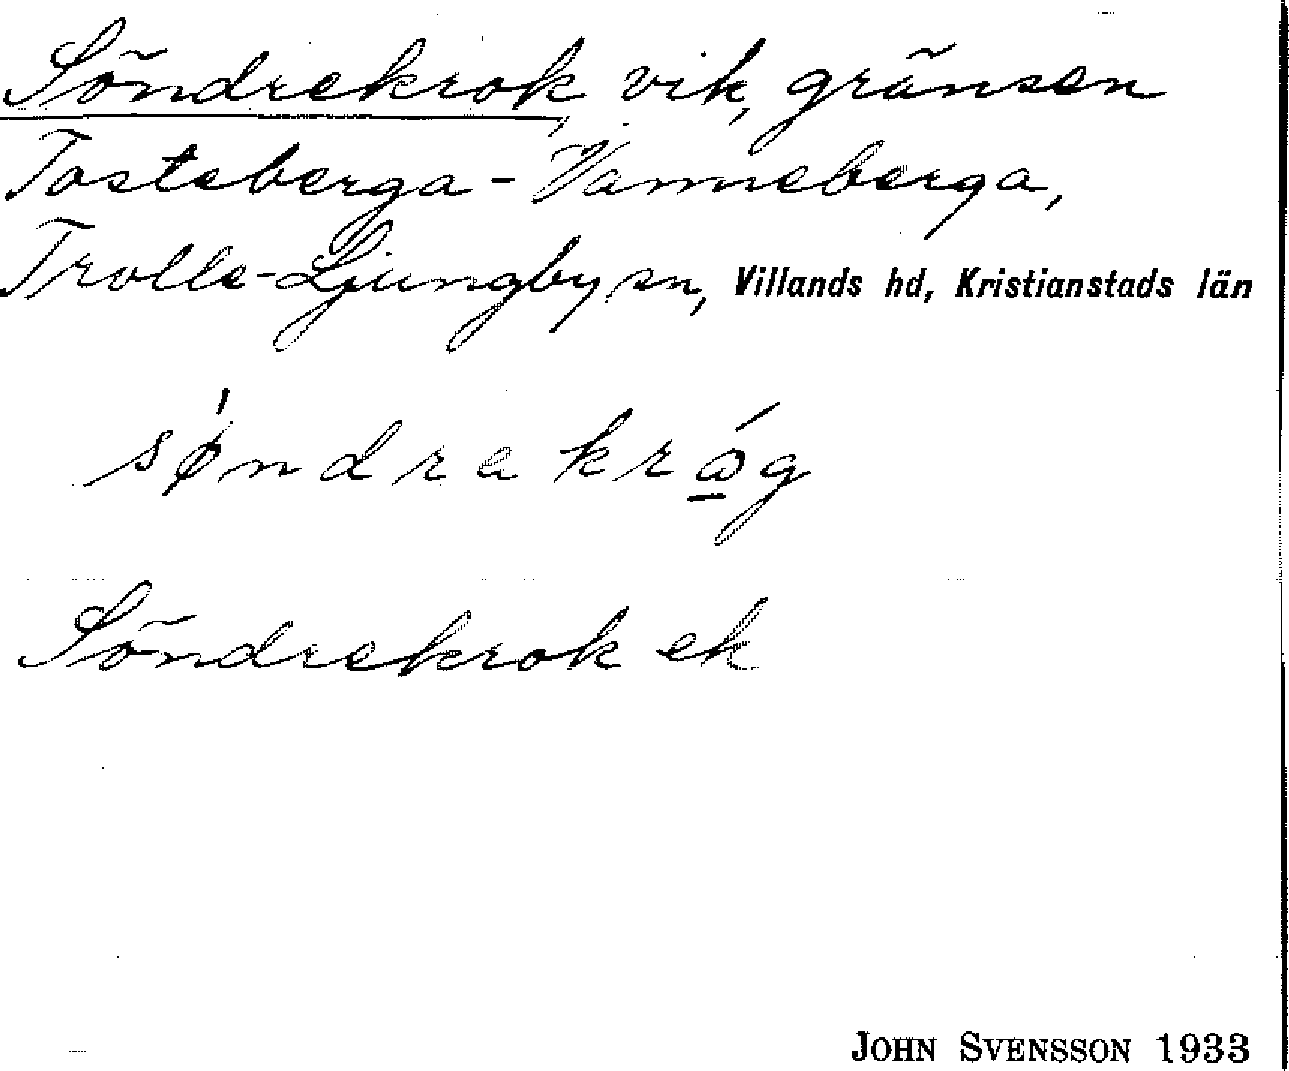 Söndrekrok, vik, gränsen
Tosteberga - Vanneberga,
Trolle-Ljungby sn, Villands hd, Kristianstads län
sǿndrakrǫ́g
Söndrekrok ek
JOHN SVENSSON 1933